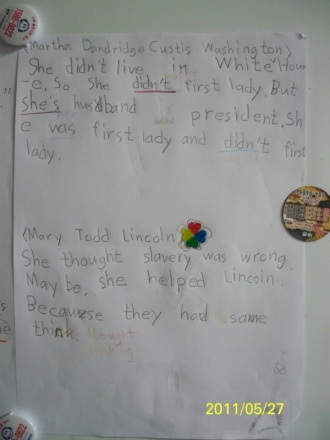 (Martha Dandridge Custis Washington)
She didn't live in White Hous
-e. So she didn't first lady. But
She's husband is president. Sh
e was first lady and didn't first
lady.
(Mary Todd Lincoln)
She thought slavery was wrong.
May be, she helped Lincoln.
Because they had same
think. thought
2011/05/27